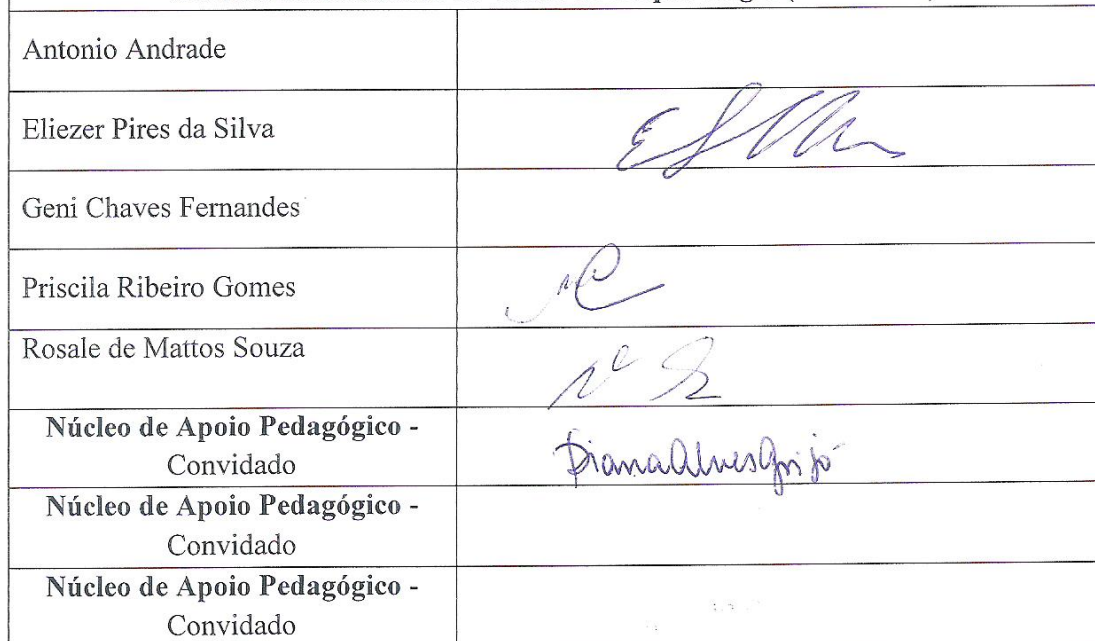 Antonio Andrade
Eliezer Pires da Silva
Geni Chaves Fernandes
Priscila Ribeiro Gomes
Rosale de Mattos Souza
Núcleo de Apoio Pedagógico -
Convidado
Diana Alves Grijó
Núcleo de Apoio Pedagógico -
Convidado
Núcleo de Apoio Pedagógico -
Convidado